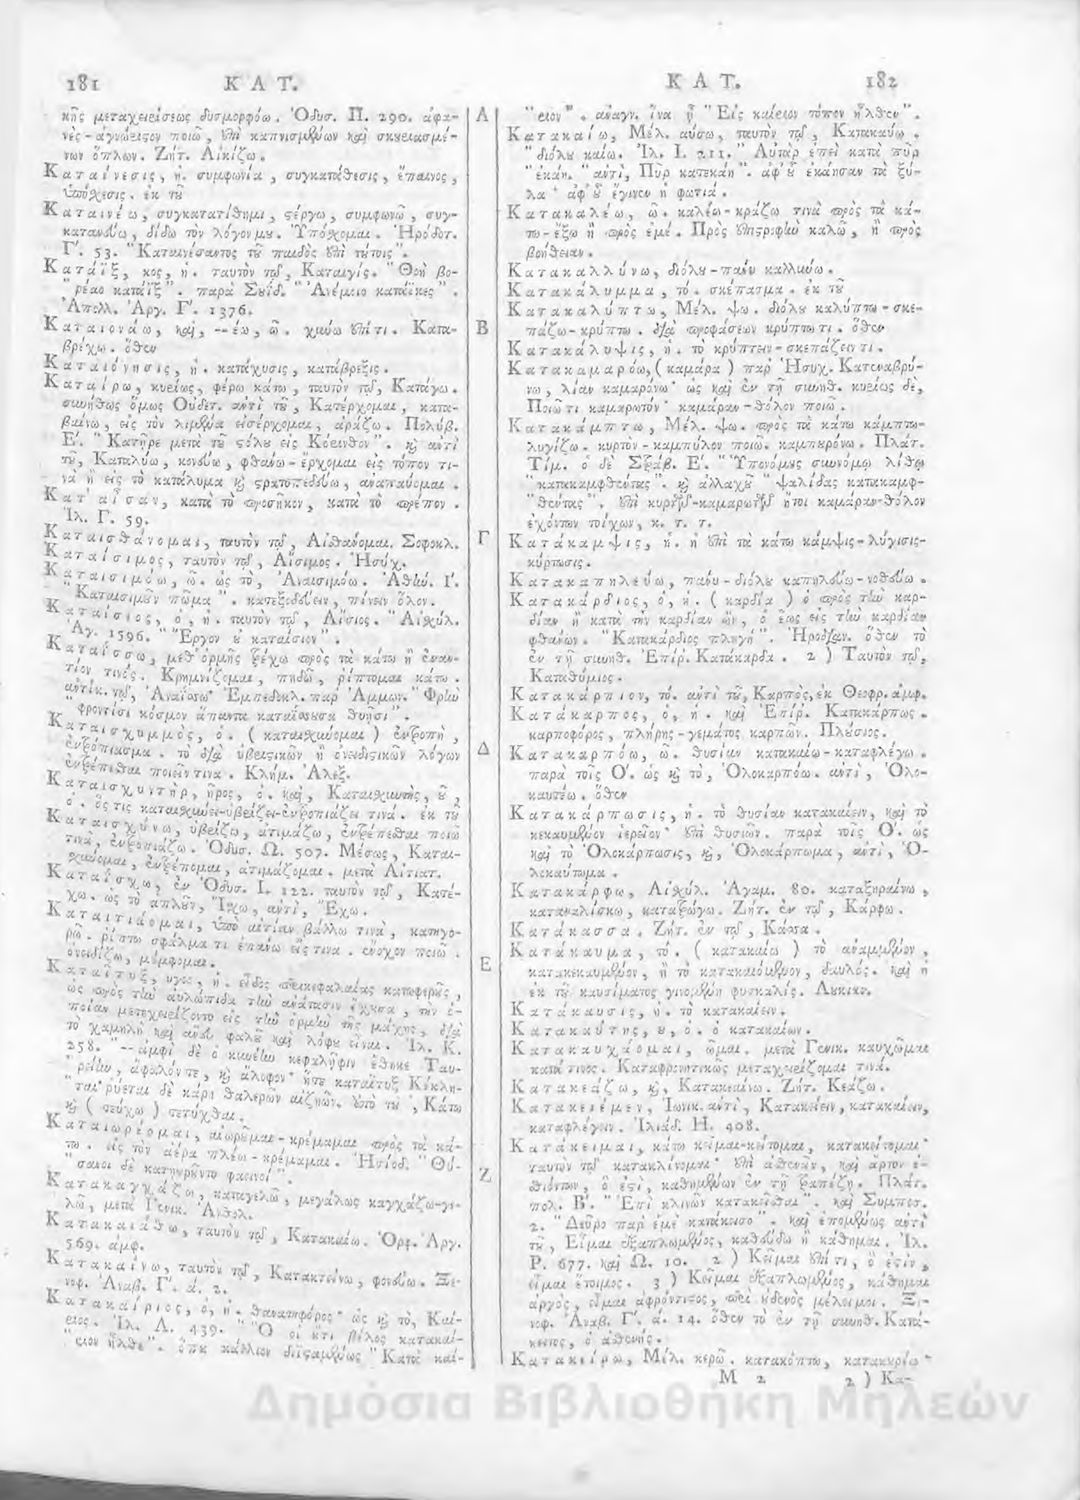 181 ΚΑΤ.
κῆς μεταχειρίσεως δυσμορφόω. Ὀδυσ. Π. 290. ἀφα-
νὲς - ἀγνώριστον ποιῶ, ἐπὶ καπνισμένων καὶ σκωριασμέ-
νων ὅπλων. Ζήτ. Αἰκίζω.
Καταίνεσις, ἡ. συμφωνία, συγκατάθεσις, ἔπαινος,
ὑπόσχεσις. ἐκ τοῦ
Καταινέω, συγκατατίθημι, στέργω, συμφωνῶ, συγ-
κατανεύω, δίδω τὸν λόγον μου. Ὑπόσχομαι. Ἡρόδοτ.
Γ. 53. "Καταινέσαντος τοῦ παιδὸς ἐπὶ τούτοις".
Κατάϊξ, κος, ἡ. ταυτὸν τῷ, Καταιγίς. "Θοὴ βο-
"ρέαο κατάϊξ". παρὰ Σουΐδ. "Ἀνέμοιο κατάϊκες".
Ἀπολλ. Ἀργ. Γ. 1376.
Καταιονάω, καὶ, --έω, ῶ. χύνω ἐπί τι. Κατα-
βρέχω. ὅθεν
Καταιόνησις, ἡ. κατάχυσις, κατάβρεξις.
Καταίρω, κυρίως, φέρω κάτω, ταυτὸν τῷ, Κατάγω.
συνήθως ὅμως Οὐδετ. ἀντὶ τοῦ, Κατέρχομαι, κατα-
βαίνω, εἰς τὸν λιμένα εἰσέρχομαι, ἀράζω. Πολύβ.
Ε. "Κατῆρε μετὰ τοῦ στόλου εἰς Κόρινθον". καὶ ἀντὶ
τοῦ, Καταλύω, κονεύω, φθάνω - ἔρχομαι εἰς τόπον τι-
νὰ ἢ εἰς τὸ κατάλυμα καὶ στρατοπεδεύω, ἀναπαύομαι.
Κατ' αἶσαν, κατὰ τὸ προσῆκον, κατὰ τὸ πρέπον.
Ἰλ. Γ. 59.
Καταισθάνομαι, ταυτὸν τῷ, Αἰσθάνομαι. Σοφοκλ.
Καταίσιμος, ταυτὸν τῷ, Αἴσιμος. Ἡσύχ.
Καταισιμόω, ῶ. ὡς τὸ, Ἀναισιμόω. Ἀθήν. Ι.
"Καταισιμοῦν πῶμα". κατεξοδεύειν, πίνειν ὅλον.
Καταίσιος, ὁ, ἡ. ταυτὸν τῷ, Αἴσιος. "Αἰσχύλ.
Ἀγ. 1596. "Ἔργον οὐ καταίσιον".
Καταΐσσω, μεθ' ὁρμῆς τρέχω πρὸς τὰ κάτω ἢ ἐναν-
τίον τινός. Κρημνίζομαι, πηδῶ, ῥίπτομαι κάτω.
ἀντίκ. τῷ, Ἀναΐσσω Ἐμπεδοκλ. παρ' Ἀμμων. "Φρὴν
"φροντίσι κόσμον ἅπαντα καταΐσσουσα θοῇσι".
Καταισχυμμὸς, ὁ. (καταισχύνομαι) ἐντροπὴ,
ἐντρόπιασμα. τὸ διὰ ὑβριστικῶν ἢ ὀνειδιστικῶν λόγων
ἐντρέπεσθαι ποιεῖν τινα. Κλήμ. Ἀλεξ.
Καταισχυντὴρ, ῆρος, ὁ. καὶ, Καταισχυντὴς, οῦ,
ὁ. ὅς τις καταισχύνει - ὑβρίζει - ἐντροπιάζει τινά. ἐκ τοῦ
Καταισχύνω, ὑβρίζω, ἀτιμάζω, ἐντρέπεσθαι ποιῶ
τινὰ, ἐντροπιάζω. Ὀδυσ. Ω. 507. Μέσως, Καται-
σχύνομαι, ἐντρέπομαι, ἀτιμάζομαι. μετὰ Αἰτιατ.
Καταΐσχω, ἐν Ὀδυσ. Ι. 122. ταυτὸν τῷ, Κατέ-
χω. ὡς τὸ ἁπλοῦν, Ἴσχω, ἀντὶ, Ἔχω.
Καταιτιάομαι, ὑπὸ αἰτίαν βάλλω τινὰ, κατηγο-
ρῶ. ῥίπτω σφάλμα τι ἐπάνω εἴς τινα. ἔνοχον ποιῶ.
ὀνειδίζω, μέμφομαι.
Καταῖτυξ, υγος, ἡ. εἶδος περικεφαλαίας κατωφερὴς,
ὡς πρὸς τὴν αὐλώπιδα τὴν ἀνάτασιν ἔχουσα, τὴν ὁ-
ποίαν μετεχειρίζοντο εἰς τὴν ὁρμὴν τῆς μάχης, διὰ
τὸ χαμηλὴ καὶ ἄνευ φάλου καὶ λόφου εἶναι. Ἰλ. Κ.
258. "--ἀμφὶ δέ οἱ κυνέην κεφαλῆφιν ἔθηκε Ταυ-
"ρείην, ἄφαλόν τε, καὶ ἄλοφον· ἥτε καταῖτυξ Κέκλη-
"ται· ῥύεται δὲ κάρη θαλερῶν αἰζηῶν. ἀπὸ τοῦ, Κάτω
καὶ (τεύχω) τετύχθαι.
Καταιωρέομαι, αἰωροῦμαι - κρέμαμαι πρὸς τὰ κά-
τω. εἰς τὸν ἀέρα πλέω - κρέμαμαι. Ἡσίοδ. "Θύ-
"σανοι δὲ κατῃωρεῦντο φαεινοί".
Κατακαγχάζω, καταγελῶ, μεγάλως καγχάζω - γε-
λῶ, μετὰ Γενικ. Ἀνθολ.
Κατακαιάθω, ταυτὸν τῷ, Κατακαίω. Ὀρφ. Ἀργ.
569. ἀμφ.
Κατακαίνω, ταυτὸν τῷ, Κατακτείνω, φονεύω. Ξε-
νοφ. Ἀναβ. Γ. ά. 2.
Κατακαίριος, ὁ, ἡ. θανατηφόρος· ὡς τὸ, Καί-
ριος. Ἰλ. Λ. 439. "Ὅ οἱ οὔτι βέλος κατακαί-
"ριον ἦλθε". ὅπερ κάλλιον διῃρημένως "Κατὰ καί-
Α
Β
Γ
Δ
Ε
Ζ
ΚΑΤ. 182
"ριον". ἀναγν. ἵνα ᾖ "Εἰς καίριον τόπον ἦλθεν".
Κατακαίω, Μέλ. αύσω, ταυτὸν τῷ, Κατακαύω.
"διόλου καίω. Ἰλ. Ι. 211. "Αὐτὰρ ἐπεὶ κατὰ πῦρ
"ἐκάη. "ἀντὶ, Πῦρ κατεκάη". ἀφ' οὗ ἐκάησαν τὰ ξύ-
λα· ἀφ' οὗ ἔγινεν ἡ φωτιά.
Κατακαλέω, ῶ. καλέω - κράζω τινὰ πρὸς τὰ κά-
τω - ἔξω ἢ πρὸς ἐμέ. Πρὸς ἐπιστροφὴν καλῶ, ἢ πρὸς
βοήθειαν.
Κατακαλλύνω, διόλου - πάνυ καλλύνω.
Κατακάλυμμα, τό. σκέπασμα. ἐκ τοῦ
Κατακαλύπτω, Μέλ. ψω. διόλου καλύπτω - σκε-
πάζω - κρύπτω. διὰ προφάσεων κρύπτω τι. ὅθεν
Κατακάλυψις, ἡ. τὸ κρύπτειν - σκεπάζειν τι.
Κατακαμαρόω, (καμάρα) παρ' Ἡσυχ. Κατεναβρύ-
νω, λίαν καμαρόνω· ὡς καὶ ἐν τῇ συνηθ. κυρίως δὲ,
Ποιῶ τι καμαρωτόν· καμάραν - θόλον ποιῶ.
Κατακάμπτω, Μέλ. ψω. πρὸς τὰ κάτω κάμπτω -
λυγίζω. κυρτὸν - καμπύλον ποιῶ. καμπυρόνω. Πλάτ.
Τίμ. ὁ δὲ Στράβ. Ε. "Ὑπονόμους συννόμῳ λίθῳ
"κατακαμφθέντας". καὶ ἀλλαχοῦ "ψαλίδας κατακαμφ-
"θέντας". ἐπὶ κυρτῶν - καμαρωτῶν ἤτοι καμάραν - θόλον
ἐχόντων τοίχων, κ. τ. τ.
Κατάκαμψις, ἡ. ἡ ἐπὶ τὰ κάτω κάμψις - λύγισις -
κύρτωσις.
Κατακαπηλεύω, πάνυ - διόλου καπηλεύω - νοθεύω.
Κατακάρδιος, ὁ, ἡ. (καρδία) ὁ πρὸς τὴν καρ-
δίαν ἢ κατὰ τὴν καρδίαν ὢν, ὁ ἕως εἰς τὴν καρδίαν
φθάνων. "Κατακάρδιος πληγή". Ἡρωδιαν. ὅθεν τὸ
ἐν τῇ συνηθ. Ἐπίρ. Κατάκαρδα. 2) Ταυτὸν τῷ,
Καταθύμιος.
Κατακάρπιον, τό. ἀντὶ τοῦ, Καρπὸς, ἐκ Θεοφρ. ἀμφ.
Κατάκαρπος, ὁ, ἡ. καὶ Ἐπίρ. Κατακάρπως.
καρποφόρος, πλήρης - γεμάτος καρπῶν. Πλούσιος.
Κατακαρπόω, ῶ. θυσίαν κατακαίω - καταφλέγω.
παρὰ τοῖς Ο. ὡς καὶ τὸ, Ὁλοκαρπόω. ἀντὶ, Ὁλο-
καυτέω. ὅθεν
Κατακάρπωσις, ἡ. τὸ θυσίαν κατακαίειν, καὶ τὸ
κεκαυμένον ἱερεῖον· ἐπὶ θυσιῶν. παρὰ τοῖς Ο. ὡς
καὶ τὸ Ὁλοκάρπωσις, καὶ, Ὁλοκάρπωμα, ἀντὶ, Ὁ-
λοκαύτωμα.
Κατακάρφω, Αἰσχύλ. Ἀγαμ. 80. καταξηραίνω,
καταναλίσκω, κατατρώγω. Ζήτ. ἐν τῷ, Κάρφω.
Κατάκασσα. Ζήτ. ἐν τῷ, Κάσσα.
Κατάκαυμα, τό. (κατακαίω) τὸ ἀναμμένον,
κατακεκαυμένον, ἢ τὸ κατακαιόμενον, δαυλός. καὶ ἡ
ἐκ τοῦ καυσίματος γινομένη φυσκαλίς. Λουκιαν.
Κατάκαυσις, ἡ. τὸ κατακαίειν.
Κατακαύτης, ου, ὁ. ὁ κατακαίων.
Κατακαυχάομαι, ῶμαι. μετὰ Γενικ. καυχῶμαι
κατά τινος. Καταφρονητικῶς μεταχειρίζομαί τινά.
Κατακεάζω, καὶ, Κατακεαίνω. Ζήτ. Κεάζω.
Κατακειέμεν, Ἰωνικ. ἀντὶ, Κατακείειν, κατακαίειν,
καταφλέγειν. Ἰλιάδ. Η. 408.
Κατάκειμαι, κάτω κεῖμαι - κοίτομαι, κατακοίτομαι·
ταυτὸν τῷ κατακλίνομαι· ἐπὶ ἀσθενῶν, καὶ ἄρτον ἐ-
σθιόντων, ὅ ἐστι, καθημένων ἐν τῇ τραπέζῃ. Πλάτ.
πολ. Β. "Ἐπὶ κλινῶν κατακεῖσθαι". καὶ Συμποσ.
2. "Δεῦρο παρ' ἐμὲ κατάκεισο". καὶ ἑπομένως ἀντὶ
τοῦ, Εἶμαι ἐξαπλωμένος, καθεύδω ἢ κάθημαι. Ἰλ.
Ρ. 677. καὶ Ω. 10. 2) Κεῖμαι ἐπί τι, ὅ ἐστιν,
εἶμαι ἕτοιμος. 3) Κεῖμαι ἐξαπλωμένος, κάθημαι
ἀργὸς, εἶμαι ἀφρόντιστος, περὶ οὐδενὸς μέλοιμοι. Ξε-
νοφ. Ἀναβ. Γ. ά. 14. ὅθεν τὸ ἐν τῇ συνηθ. Κατά-
κοιτος, ὁ ἀσθενής.
Κατακείρω, Μέλ. κερῶ. κατακόπτω, κατακυρεύω·
Μ 2 2) Κα-
Δημόσια Βιβλιοθήκη Μηλεών